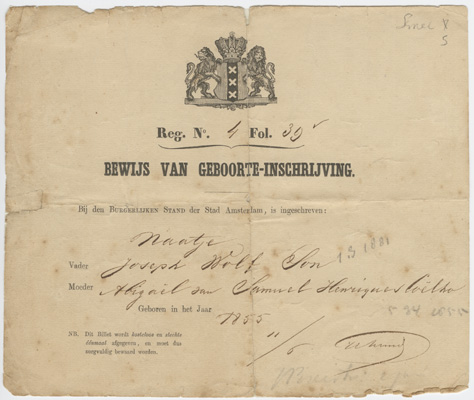 Reg. No. 4 Fol. 39v
BEWIJS VAN GEBOORTE-INSCHRIJVING.
Bij den BURGERLIJKEN STAND der Stad Amsterdam, is ingeschreven:
Naatje
Vader Joseph Wolf Son
Moeder Abigaël van Samuel Henriques Coëlho
Geboren in het Jaar
1855
NB. Dit Billet wordt kosteloos en slechts
éénmaal afgegeven, en moet dus
zorgvuldig bewaard worden.
11/5